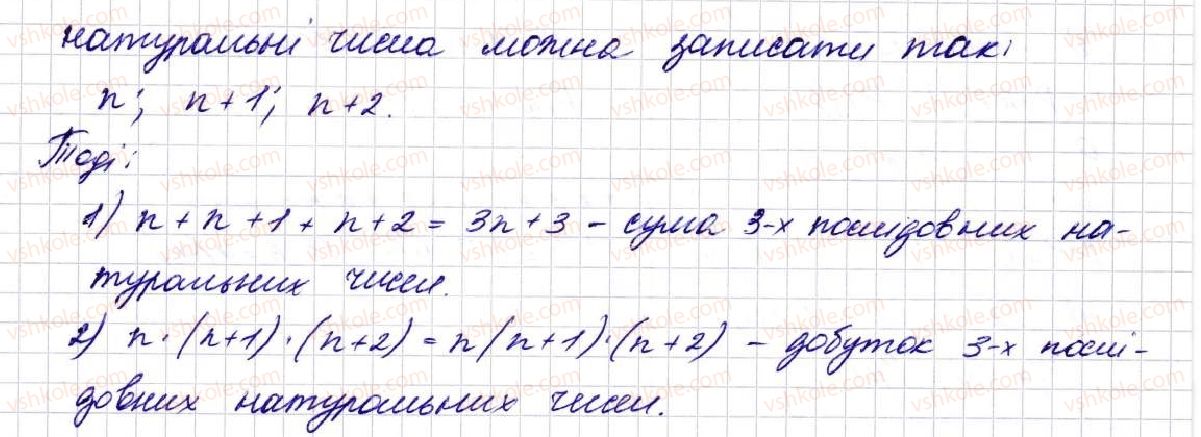 натуральні числа можна записати так:
n; n+1; n+2.
Тоді:
1) n + n + 1 + n + 2 = 3n + 3 – сума 3-х послідовних на-
туральних чисел.
2) n · (n+1) · (n+2) = n(n+1)·(n+2) – добуток 3-х послі-
довних натуральних чисел.